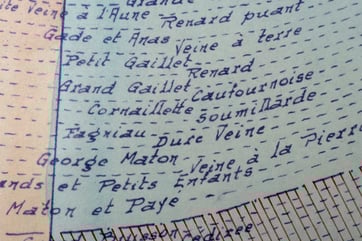 Grande
ite Veine à l'Aune Renard puant
Gade et Anas Veine à terre
Petit Gaillet Renard
Grand Gaillet Cautournoise
Cornaillette Soumillarde
Fagniau Dure Veine
George Maton Veine à la Pierre
ands et Petits Enfants
Maton et Paye